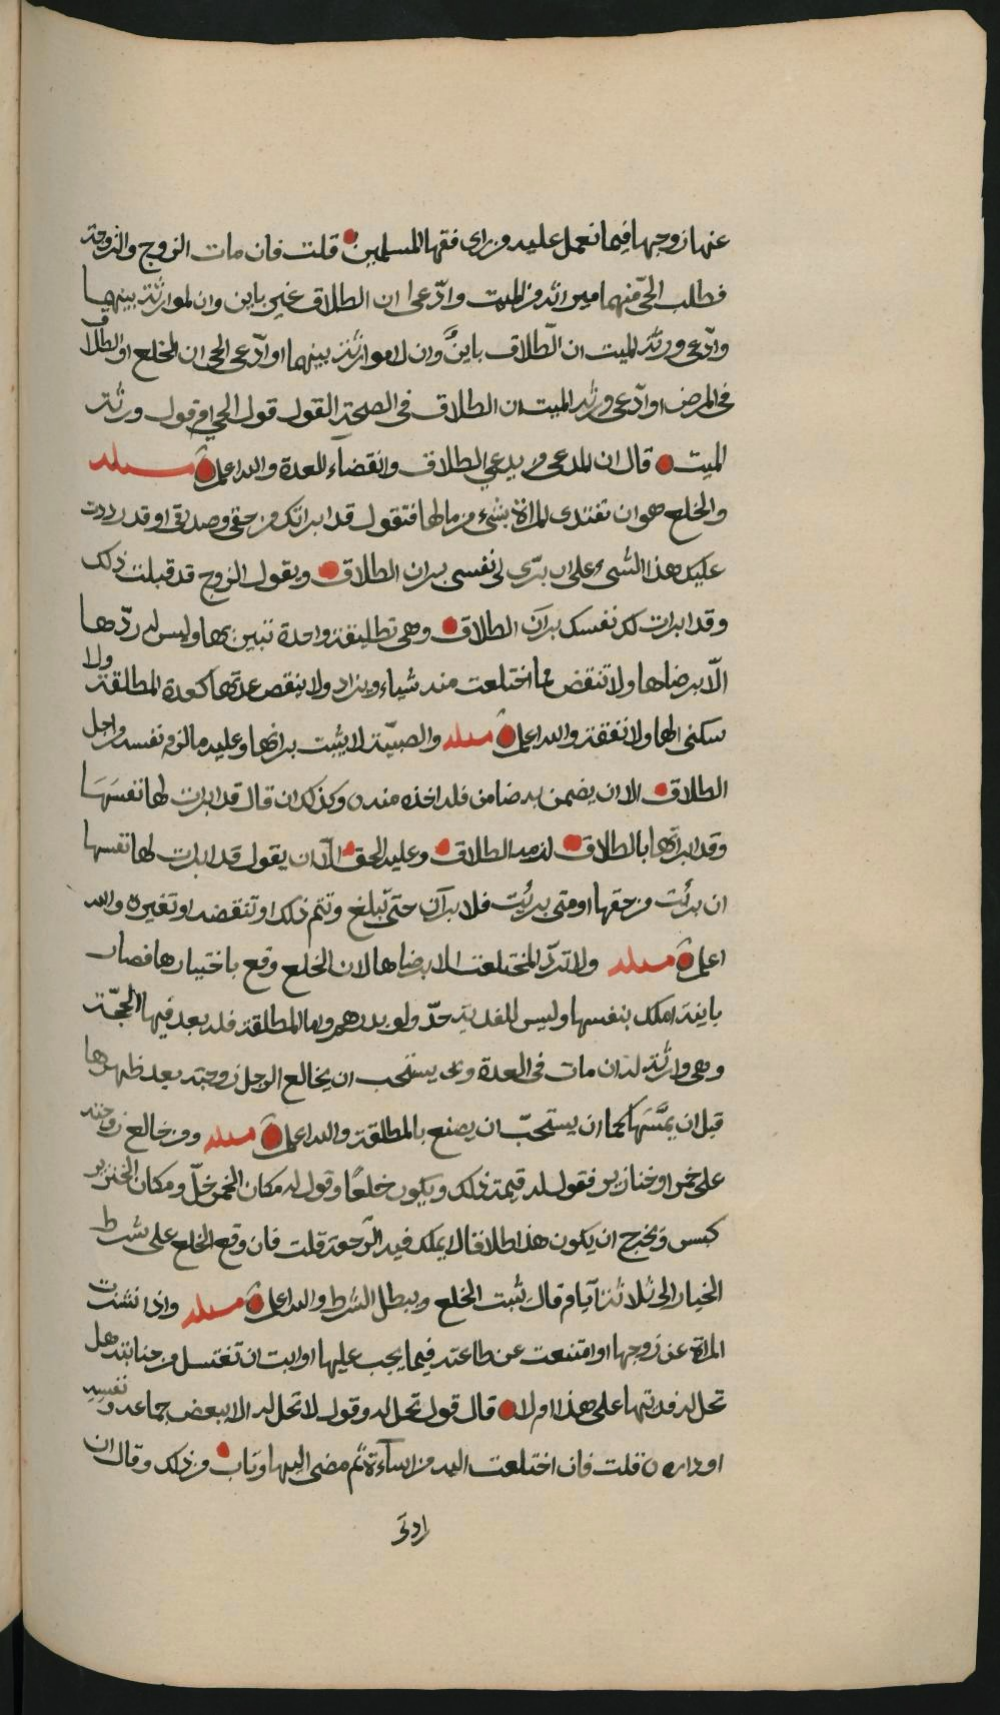 عنها زوجها فيما نعمل عليه من راى فقها المسلمين قلت فان مات الزوج والزوجة
فطلب الحيّ منهما ميراثه من الميت وادّعى ان الطلاق غير باين وان الموارثة بينهما
وادّعى ورثة الميت ان الطلاق باينٌ وان لا موارثة بينهما او ادّعى الحي ان الخلع او الطلاق
فى المرض او ادّعى ورثة الميت ان الطلاق فى الصحة القول قول الحي ام قول ورثة
الميت قال ان المدعى من يدعي الطلاق وانقضاء العدة والله اعلم مسئلة
والخلع هو ان تفتدى المراة بشيء من مالها فتقول قد ابراتك من حقي وصدقي او قد رددت
عليك هذا الشىء على ان تبرّى لى نفسى بران الطلاق ويقول الزوج قد قبلت ذلك
وقد ابرات لك نفسك برآن الطلاق وهى تطليقة واحدة تبين بها وليس له ردّها
الّا برضاها ولا تنقض مما اختلعت منه شياء ويزاد ولا ينقص عدتها كعدة المطلقة ولا
سكنى لها ولا نفقة والله اعلم مسئلة والصبيّة لا يثبت برانها وعليه ما لزم نفسه من اجل
الطلاق الا ان يضمن به ضامن فله اخذه منه وكذلك ان قال قد ابرات لها نفسَهَا
وقد ابراتها بالطلاق لزمه الطلاق وعليه الحق الّا ان يقول قد ابرات لها نفسها
ان برئت من حقها او متى برئت فلا برآن حتى تبلغ وتتم ذلك او تنقضه او تغيره والله
اعلم مسئلة ولا تردّ المختلعة الا برضاها لان الخلع وقع باختيارها فصارت
باينة املك بنفسها وليس للفدية حدّ ولو بدرهم واما المطلقة فله بعد فيها الحجّة
وهى وارثة له ان مات فى العدة ويستحب ان يخالع الرجل زوجته بعد طهرها
قبل ان يمّسَها كما ان يستحبّ ان يصنع بالمطلقة والله اعلم مسئلة ومن خالع زوجته
على خمر او خنازير فقول له قيمة ذلك ويكون خلعًا وقول له مكان الخمر خلّ ومكان الخنزير
كبس ويخرج ان يكون هذا طلاقا لا يملك فيه الرجوع قلت فان وقع الخلع على شرط
الخيار الى ثلاثة ايام قال ثبت الخلع ويبطل الشرط والله اعلم مسئلة واذا نشزت
المراة عن زوجها او امتنعت عن طاعته فيما يجب عليها او ابت ان تغتسل من جنابة هل
تحل له فديتها على هذا ام لا قال قول تحل له وقول لا تحل له الا ببعض جماعه ونفسه
او داره قلت فان اختلعت اليه من اساءة ثم مضى اليها وتاب من ذلك وقال ان
اردتى